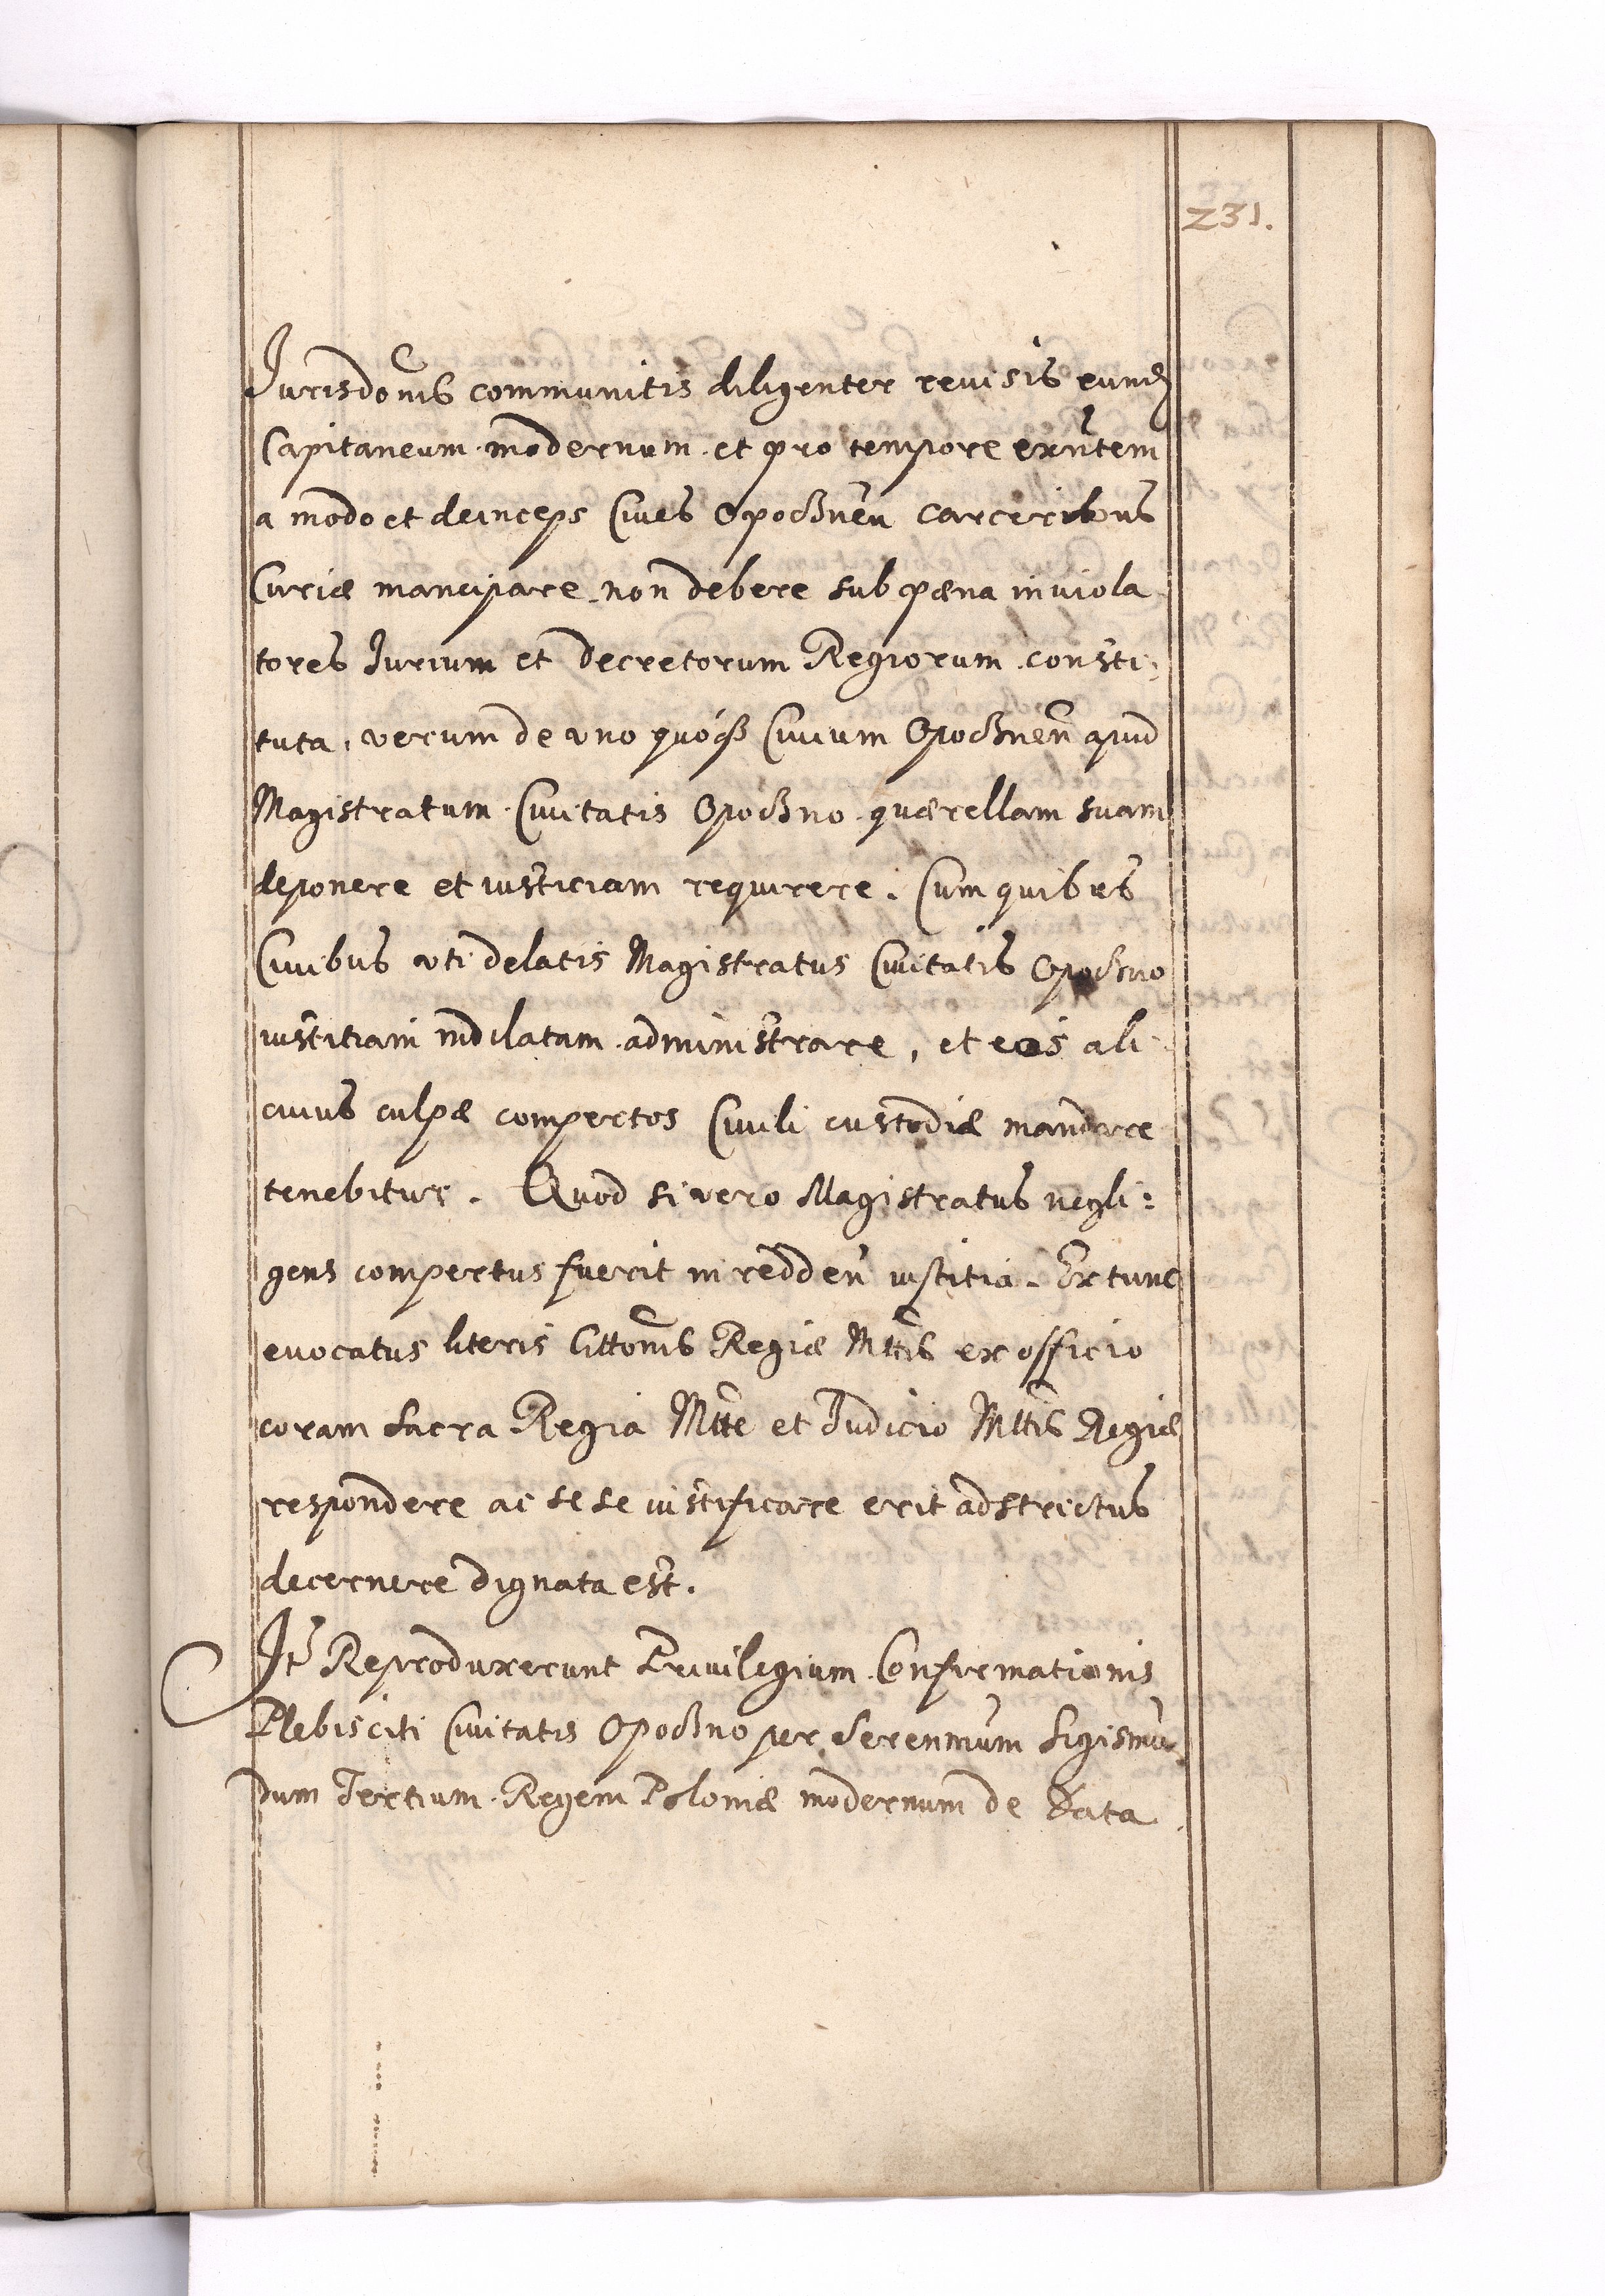 231.
Jurisdonis communitis diligenter reuisis eund
Capitaneum modernum et pro tempore exñtem
a modo et deinceps Ciues Opocznen carceribus
Curiæ mancipare non debere sub pæna in viola
tores Jurium et Decretorum Regiorum consti:
tuta, verum de vno quoqȝ Ciuium Opocznen̄ apud
Magistratum Ciuitatis Opoczno quærellam suam
deponere et iusticiam requirere. Cum quibus
Ciuibus vti delatis Magistratus Ciuitatis Opoczno
iustitiam indilatam administrare, et eos ali
cuius culpæ compertos Ciuili custodiæ mandare
tenebitur. Quod si vero Magistratus negli:
gens compertus fuerit in redden̄ iustitia. Ex tunc
euocatus literis Cittonis Regiæ Mttis ex officio
coram Sacra Regia Mtte et Judicio Mttis Regiæ
respondere ac sese iustificare erit adstrictus
decernere dignata est.
Jt Reproduxerunt Priuilegium Confirmationis
Plebisciti Ciuitatis Opoczno per Serenmum Sigismū
dum Tertium Regem Poloniæ modernum de Data